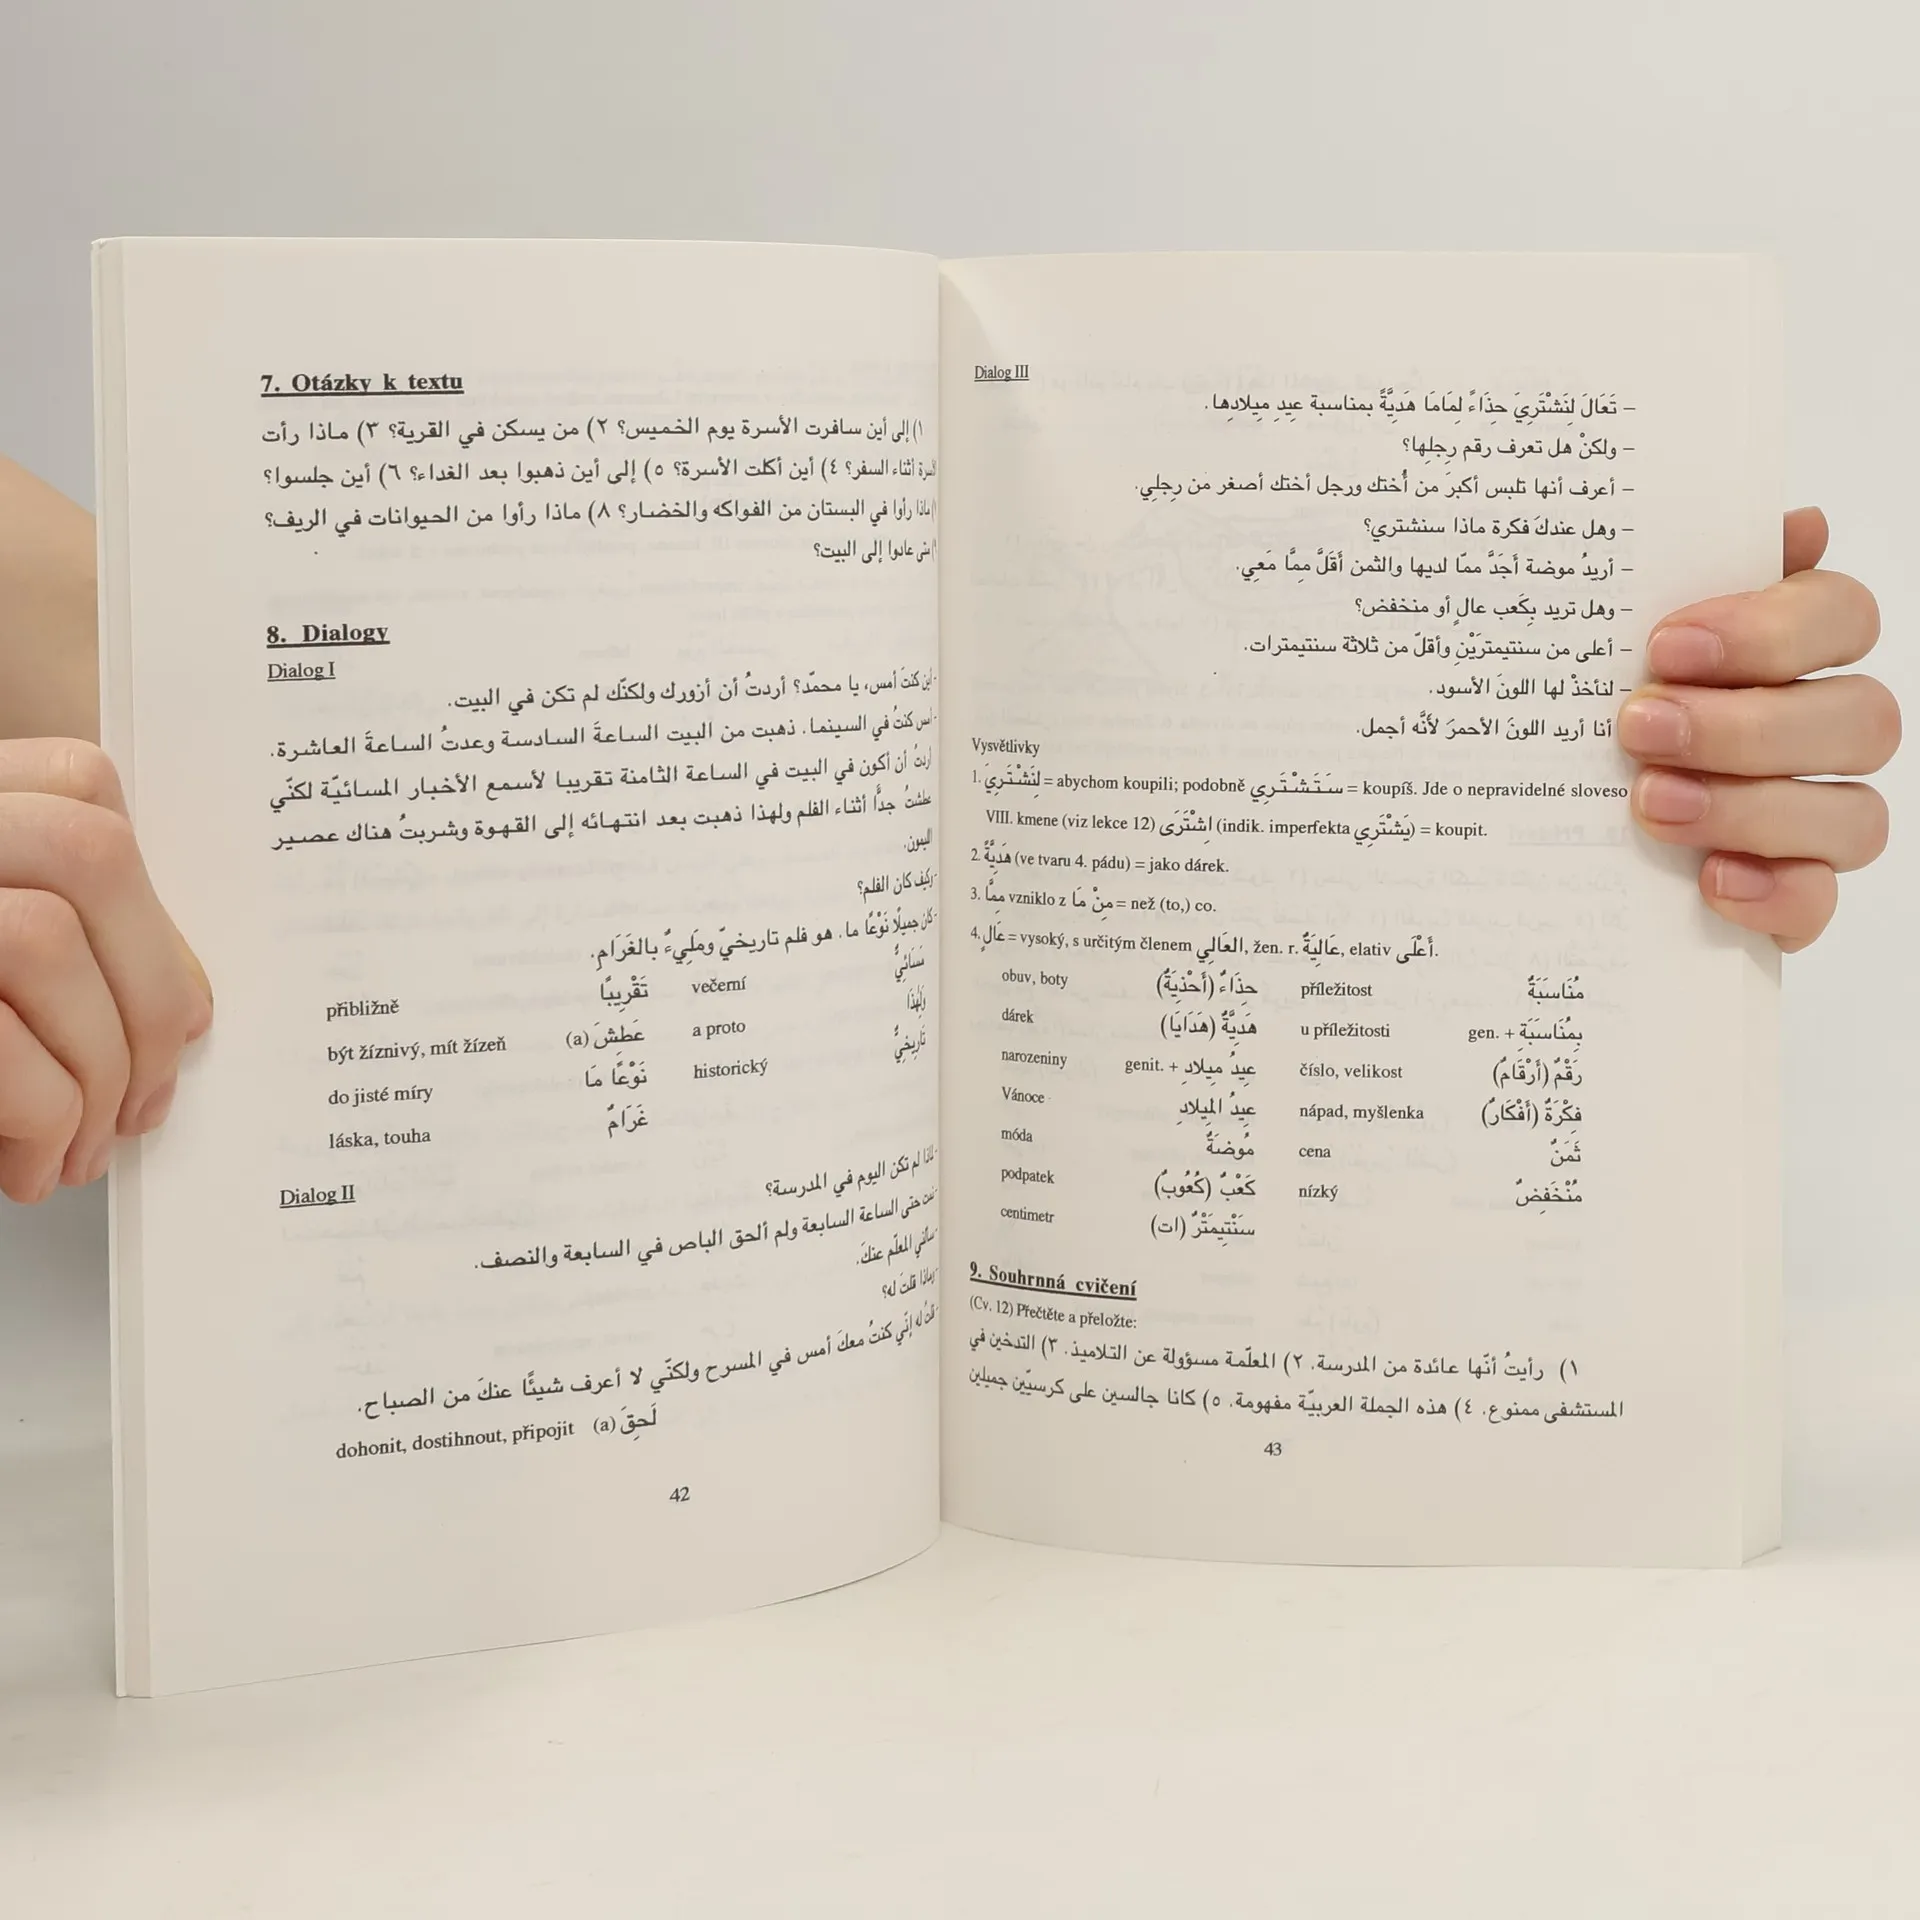 7. Otázky k textu
١) إلى أين سافرت الأسرة يوم الخميس؟ ٢) من يسكن في القرية؟ ٣) ماذا رأت
أثناء السفر؟ ٤) أين أكلت الأسرة؟ ٥) إلى أين ذهبوا بعد الغداء؟ ٦) أين جلسوا؟
ماذا رأوا في البستان من الفواكه والخضار؟ ٨) ماذا رأوا من الحيوانات في الريف؟
عادوا إلى البيت؟
8. Dialogy
Dialog I
- أين كنتَ أمس، يا محمّد؟ أردتُ أن أزورك ولكنّك لم تكن في البيت.
- أمس كنتُ في السينما. ذهبت من البيت الساعةَ السادسة وعدتُ الساعةَ العاشرة.
أردتُ أن أكون في البيت في الساعة الثامنة تقريبا لأسمع الأخبار المسائيّة لكنّي
عطشتُ جدًّا أثناء الفلم ولهذا ذهبت بعد انتهائه إلى القهوة وشربتُ هناك عصير
الليمون.
- وكيف كان الفلم؟
- كان جميلًا نَوْعًا ما. هو فلم تاريخيّ ومَلِيءٌ بالغَرَامِ.
přibližně تَقْرِيبًا večerní مَسَائِيٌّ
být žíznivý, mít žízeň عَطِشَ (a) a proto وَلِهٰذَا
do jisté míry نَوْعًا مَا historický تَارِيخِيٌّ
láska, touha غَرَامٌ
Dialog II
- لماذا لم تكن اليوم في المدرسة؟
- نمت حتى الساعة السابعة ولم ألحق الباص في السابعة والنصف.
- سألني المعلّم عنكَ.
- وماذا قلتَ له؟
- قلتُ له إنّي كنتُ معكَ أمس في المسرح ولكنّي لا أعرف شيئًا عنكَ من الصباح.
dohonit, dostihnout, připojit (a) لَحِقَ
42
Dialog III
– تَعَالَ لِنَشْتَرِيَ حِذَاءً لِمَامَا هَدِيَّةً بمناسبة عيدِ مِيلادِها.
– ولكنْ هل تعرف رقم رِجلِها؟
– أعرف أنها تلبس أكبرَ من أُختك ورجل أختك أصغر من رِجلِي.
– وهل عندكَ فكرة ماذا سنشتري؟
– أريدُ موضة أَجَدَّ ممّا لديها والثمن أَقَلَّ مِمَّا مَعِي.
– وهل تريد بِكَعب عالٍ أو منخفض؟
– أعلى من سنتيمترَيْنِ وأقلّ من ثلاثة سنتيمترات.
– لنأخذْ لها اللونَ الأسود.
أنا أريد اللونَ الأحمرَ لأَنَّه أجمل.
Vysvětlivky
1. لِنَشْتَرِيَ = abychom koupili; podobně سَتَشْتَرِي = koupíš. Jde o nepravidelné sloveso
VIII. kmene (viz lekce 12) اِشْتَرَى (indik. imperfekta يَشْتَرِي) = koupit.
2. هَدِيَّةً (ve tvaru 4. pádu) = jako dárek.
3. مِمَّا vzniklo z مِنْ مَا = než (to,) co.
4. عَالٍ = vysoký, s určitým členem العَالِي, žen. r. عَالِيَةٌ, elativ أَعْلَى.
obuv, boty حِذَاءٌ (أَحْذِيَةٌ) příležitost مُنَاسَبَةٌ
dárek هَدِيَّةٌ (هَدَايَا) u příležitosti gen. + بِمُنَاسَبَةِ
narozeniny genit. + عِيدُ مِيلادِ číslo, velikost رَقْمٌ (أَرْقَامٌ)
Vánoce عِيدُ المِيلادِ nápad, myšlenka فِكْرَةٌ (أَفْكَارٌ)
móda مُوضَةٌ cena ثَمَنٌ
podpatek كَعْبٌ (كُعُوبٌ) nízký مُنْخَفِضٌ
centimetr سَنْتِيمَتْرٌ (ات)
9. Souhrnná cvičení
(Cv. 12) Přečtěte a přeložte:
١) رأيتُ أنّها عائدة من المدرسة. ٢) المعلّمة مسؤولة عن التلاميذ. ٣) التدخين في
المستشفى ممنوع. ٤) هذه الجملة العربيّة مفهومة. ٥) كانا جالسين على كرسيّين جميلين
43